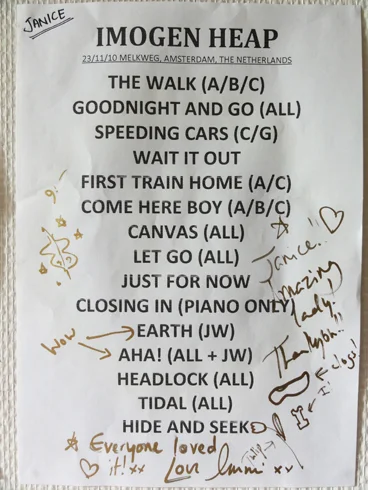 JANICE
IMOGEN HEAP
23/11/10 MELKWEG, AMSTERDAM, THE NETHERLANDS
THE WALK (A/B/C)
GOODNIGHT AND GO (ALL)
SPEEDING CARS (C/G)
WAIT IT OUT
FIRST TRAIN HOME (A/C)
COME HERE BOY (A/B/C)
CANVAS (ALL)
LET GO (ALL)
JUST FOR NOW
CLOSING IN (PIANO ONLY)
EARTH (JW)
AHA! (ALL + JW)
HEADLOCK (ALL)
TIDAL (ALL)
HIDE AND SEEK
Janice!!
Amazing
lady!!
Thankyou!!
Wow
Everyone loved
it! xx Love Immi xx